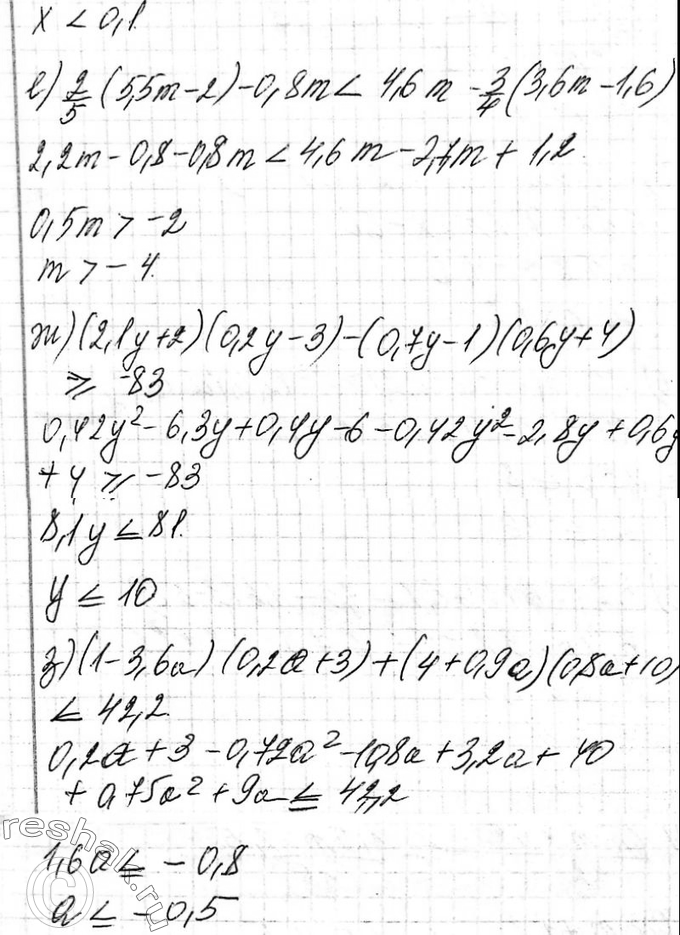 x < 0,1.
е) 2/5 (5,5m-2)-0,8m < 4,6m - 3/4 (3,6m-1,6)
2,2m-0,8-0,8m < 4,6m-2,7m + 1,2.
0,5m > -2
m > -4.
ж) (2,1y+2)(0,2y-3)-(0,7y-1)(0,6y+4)
⩾ -83
0,42y²-6,3y+0,4y-6-0,42y²-2,8y+0,6y
+4 ⩾ -83
8,1y ≤ 81.
y ≤ 10
з) (1-3,6a)(0,2a+3)+(4+0,9a)(0,8a+10)
≤ 42,2.
0,2a+3-0,72a²-10,8a+3,2a+40
+0,75a²+9a ≤ 42,2
1,6a ≤ -0,8
a ≤ -0,5
reshak.ru